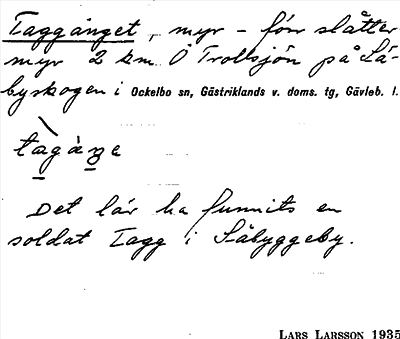 Taggånget, myr – förr slåtter-
myr 2 km Ö Trollsjön på Så-
byskogen i Ockelbo sn, Gästriklands v. doms. tg, Gävleb. l.
tagàŋe
Det lär ha funnits en
soldat Tagg i Såbyggeby.
LARS LARSSON 1935